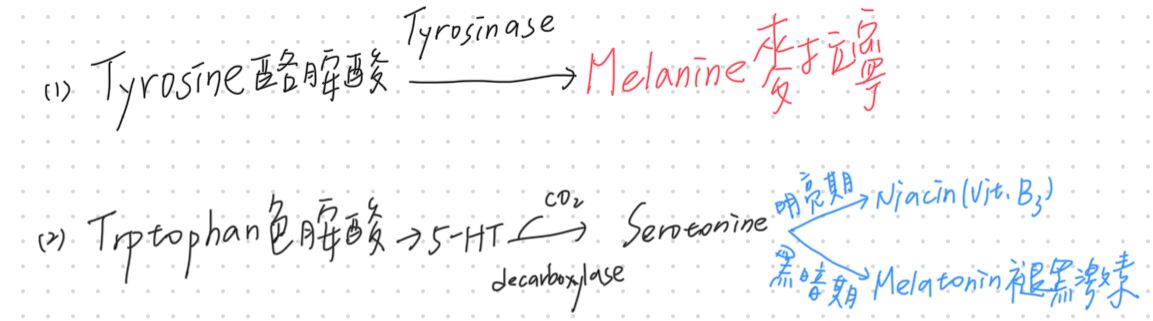 Tyrosinase
(1) Tyrosine 酪胺酸 → Melanine 麥拉寧
CO₂ 明亮期 Niacin (Vit. B₃)
(2) Trptophan 色胺酸 → 5-HT → Serotonine
decarboxylase 黑暗期 Melatonin 褪黑激素